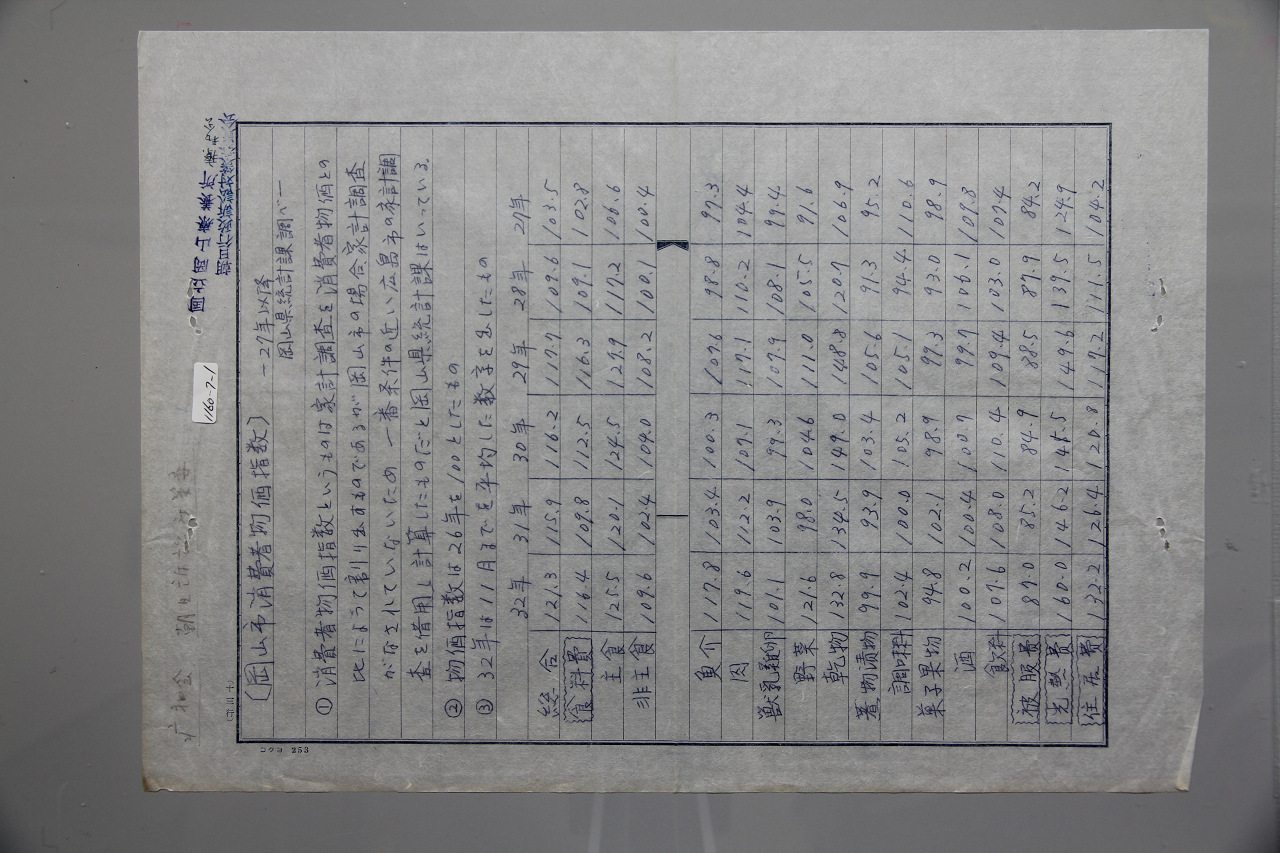 1160-7-1
(岡山市消費者物価指数) ―27年以降
岡山県統計課調べ―
① 消費者物価指数というものは家計調査を消費者物価との
比によって割り出すものであるが岡山市の場合家計調査
がなされていないため 一番条件の近い広島市の家計調
査を借用し計算したものだと岡山県統計課はいっている。
② 物価指数は26年を100としたもの
③ 32年は11月までを平均した数字を出したもの
32年 31年 30年 29年 28年 27年
総合 121.3 115.9 116.2 117.7 109.6 103.5
食料費 116.4 109.8 112.5 116.3 109.1 102.8
主食 125.5 120.1 124.5 127.9 117.2 106.6
非主食 109.6 102.4 104.0 108.2 100.1 100.4
魚介 117.8 103.4 100.3 107.6 98.8 97.3
肉 119.6 112.2 107.1 117.1 110.2 104.4
獣乳鶏卵 101.1 103.9 99.3 107.9 108.1 99.4
野菜 121.6 98.0 104.6 111.0 105.5 91.6
乾物 132.8 134.5 149.0 148.8 120.7 106.9
煮物漬物 99.9 93.9 103.4 105.6 91.3 95.2
調味料 102.4 100.0 105.2 105.1 94.4 110.6
菓子果物 94.8 102.1 98.9 99.3 93.0 98.9
酒 100.2 100.4 100.7 99.7 106.1 109.8
飲料 107.6 108.0 110.4 109.4 103.0 107.4
被服費 87.0 85.2 84.9 88.5 87.9 84.2
光熱費 160.0 146.2 145.5 149.6 139.5 124.9
住居費 132.2 126.4 120.8 117.2 111.5 104.2
コクヨ 253